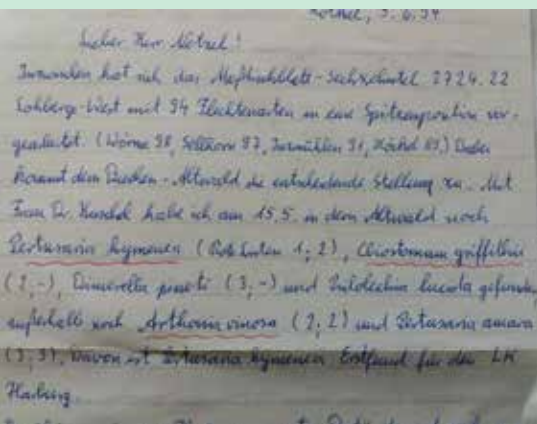 Höckel, 5.6.94
Lieber Herr Wetzel!
Inzwischen hat sich das Meßtischblatt-Sechzehntel 2724.22
Lohberge-West mit 94 Flechtenarten in eine Spitzenposition vor-
gearbeitet. (Wörme 98, Sellhorn 97, Inzmühlen 91, Höckel 89.) Dabei
kommt dem Buchen-Altwald die entscheidende Stellung zu. Mit
Frau Dr. habe ich am 15.5. in dem Altwald noch
Pertusaria hymenea (Rote Listen 1; 2), Cliostomum griffithii
(2,-), Dimerella pineti (3,-) und lucida gefunden,
außerhalb noch Arthonia vinosa (2; 2) und Pertusaria amara
(3; 3). Davon ist Pertusaria hymenea Erstfund für den LK
Harburg.